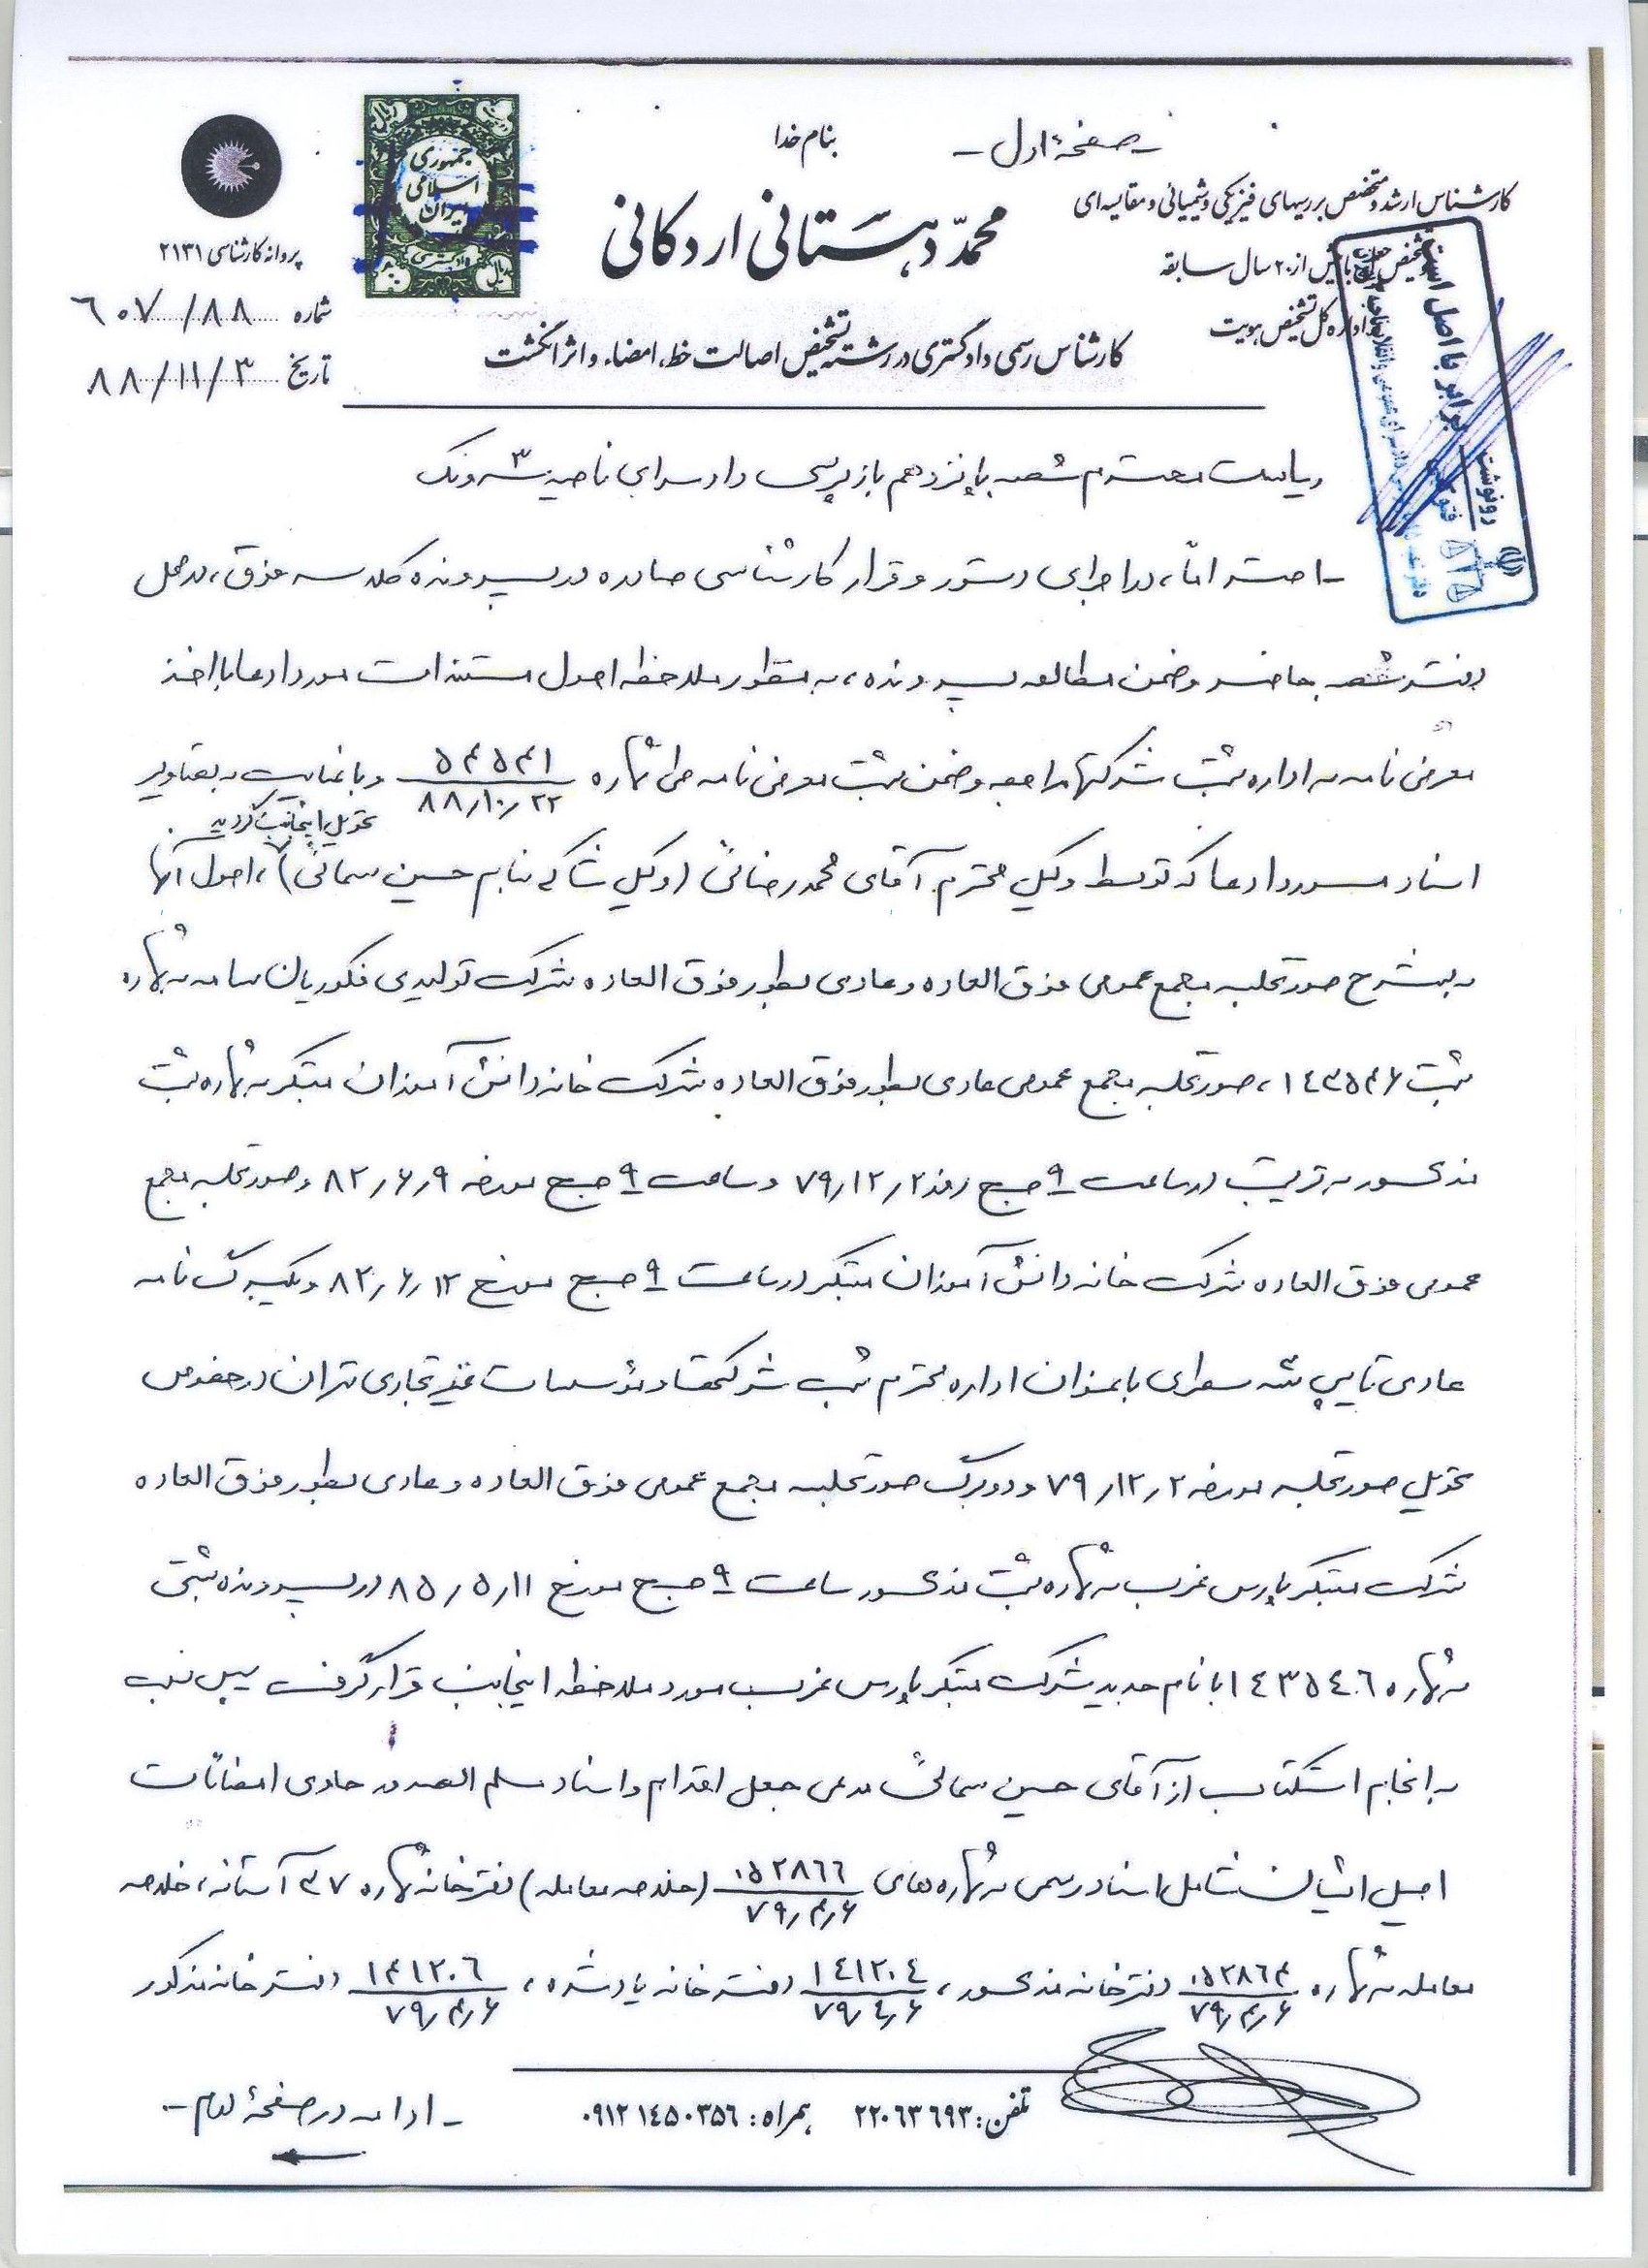 -صفحهٔ اول-
بنام خدا
کارشناس ارشد و متخصص بررسیهای فیزیکی و شیمیائی و مقایسه‌ای
تشخیص با بیش از ۲۰ سال سابقه
اداره کل تشخیص هویت
جمهوری
اسلامی
ایران
محمّد دهستانی اردکانی
کارشناس رسمی دادگستری در رشته تشخیص اصالت خط، امضاء و اثر انگشت
پروانه کارشناسی ۲۱۳۱
شماره ۶۰۷/۸۸
تاریخ ۸۸/۱۱/۳
برابر با اصل است
رونوشت
فتوکپی
ریاست محترم شعبه پانزدهم بازپرسی دادسرای ناحیه ۳ ونک
-احتراماً، در اجرای دستور و قرار کارشناسی صادره در پرونده کلاسه فوق، در محل
دفتر شعبه حاضر و ضمن مطالعه پرونده، به منظور ملاحظه اصول مستندات مورد ادعا با اخذ
معرفی نامه به اداره ثبت شرکتها مراجعه و ضمن ثبت معرفی نامه طی شماره ۵۴۵۴۱ / ۸۸٫۱۰٫۲۲ و با عنایت به تصاویر
تحویل اینجانب گردید
اسناد مورد ادعا که توسط وکیل محترم آقای محمد رضائی (وکیل شاکی بنام حسین سمائی)، اصول آنها
به شرح صورتجلسه مجمع عمومی فوق العاده و عادی بطور فوق العاده شرکت تولیدی فکوریان سامه به شماره
ثبت ۱۴۳۵۴۶، صورتجلسه مجمع عمومی عادی بطور فوق العاده شرکت خانه دانش آموزان مبتکر به شماره ثبت
مذکور به ترتیب در ساعت ۹ صبح روز ۷۹٫۱۲٫۲ و ساعت ۹ صبح مورخه ۸۲٫۶٫۹ و صورتجلسه مجمع
عمومی فوق العاده شرکت خانه دانش آموزان مبتکر در ساعت ۹ صبح مورخ ۸۲٫۶٫۱۲ و یکبرگ نامه
عادی تایپ شده با عنوان اداره محترم ثبت شرکتها و مؤسسات غیر تجاری تهران در خصوص
تحویل صورتجلسه مورخه ۷۹٫۱۲٫۲ و دو برگ صورتجلسه مجمع عمومی فوق العاده و عادی بطور فوق العاده
شرکت مبتکر پارس غرب به شماره ثبت مذکور ساعت ۹ صبح مورخ ۸۵٫۵٫۱۱ در پرونده ثبتی
به شماره ۱۴۳۵۴۶ با نام جدید شرکت مبتکر پارس غرب مورد ملاحظه اینجانب قرار گرفت سپس
به انجام استکتاب از آقای حسین سمائی مدعی جعل اقدام و اسناد مسلم الصدور حاوی امضائات
اصیل ایشان شامل اسناد رسمی به شماره های ۰۵۲۸۶۶ / ۷۹٫۴٫۶ (خلاصه معامله) دفترخانه شماره ۳۷ آستانه، خلاصه
معامله به شماره ۰۵۲۸۶۴ / ۷۹٫۴٫۶ دفترخانه مذکور، ۱۴۱۲۰۴ / ۷۹٫۴٫۶ دفترخانه یاد شده، ۱۴۱۲۰۶ / ۷۹٫۴٫۶ دفترخانه مذکور
تلفن: ۲۲۰۶۳۶۹۳ همراه: ۰۹۱۲۱۴۵۰۳۵۶
-ادامه در صفحهٔ دوم-